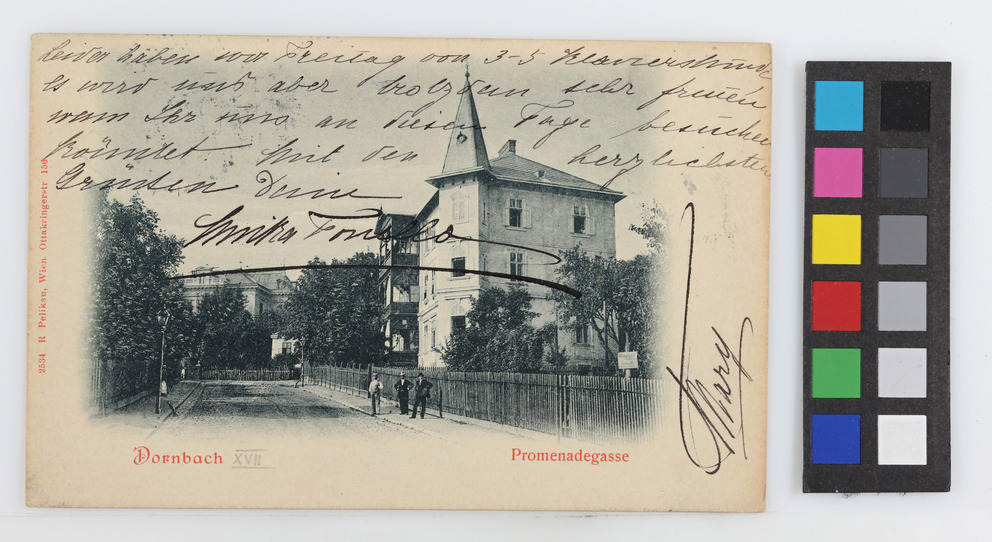 Leider haben wir Freitag von 3-5 Klavierstunde
es wird uns aber trotzdem sehr freuen
wenn Ihr uns an diesem Tage besuchen
könntet Mit den herzlichsten
Grüßen Deine
Mary
2534 R Peliksn, Wien. Ottakringerstr 150
Dornbach XVII
Promenadegasse